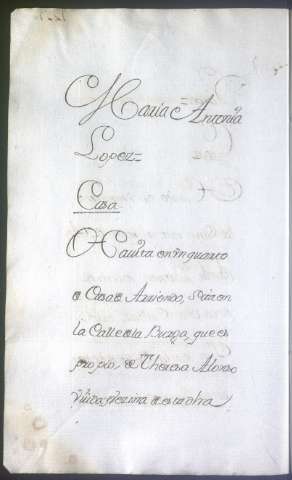 Maria Antonia
Lopez =
Casa
Havita en un quarto
de Casa de Arriendo, sita en
la Calle de la Buega, que es
propio, de Theresa Alonso
Viuda, vezina de esta dha